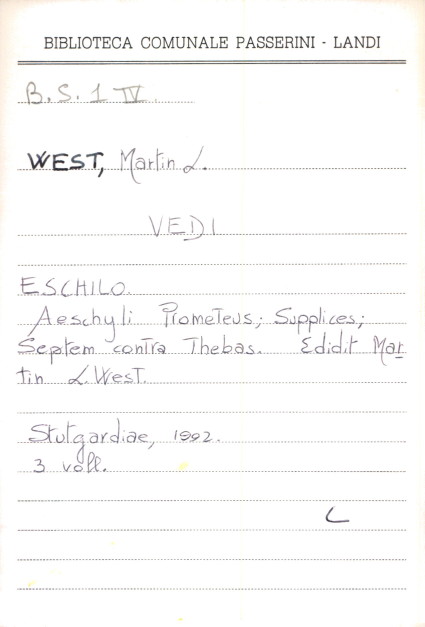 BIBLIOTECA COMUNALE PASSERINI - LANDI
B.S. 1 IV
WEST, Martin L.
VEDI
ESCHILO.
Aeschyli Prometeus; Supplices;
Septem contra Thebas. Edidit Mar
tin L. West.
Stutgardiae, 1992.
3 voll.
L